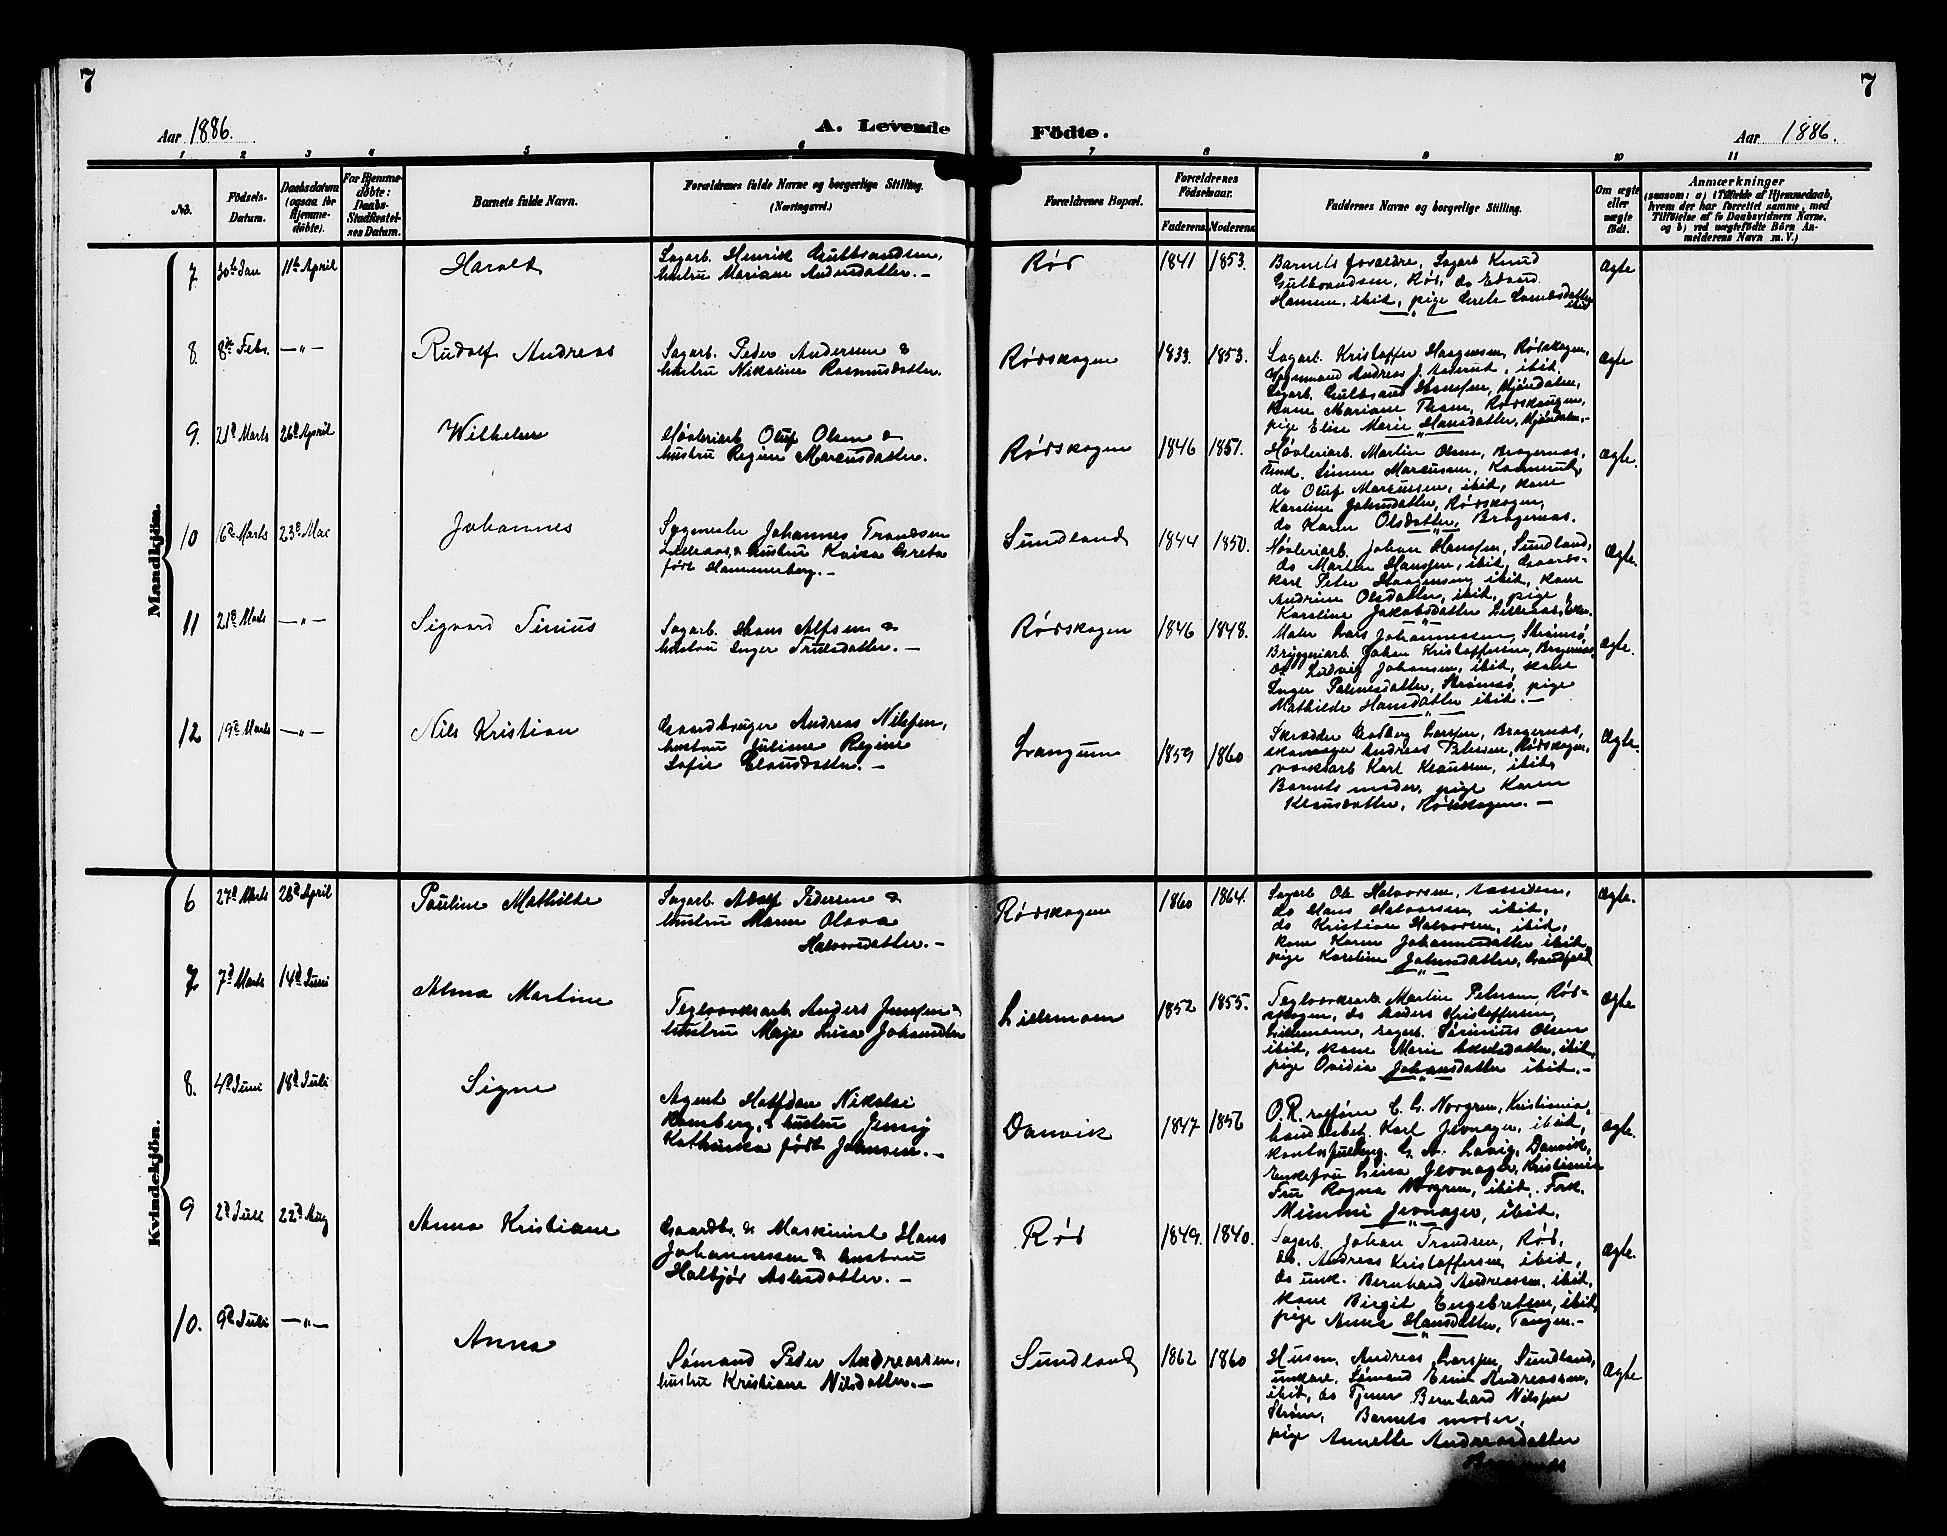 7
7
Aar 1886.
A. Levende
Födte.
Aar 1886.
1 2 3 4 5 6 7 8 9 10 11
No.
Födsels-
Datum.
Daabsdatum
(ogsaa for
Hjemme-
döbte).
For Hjemme-
döbte:
Daabs-
Stadfæstel-
ses Datum.
Barnets fulde Navn.
Forældrenes fulde Navne og borgerlige Stilling.
(Næringsvei.)
Forældrenes Bopæl.
Forældrenes
Födselsaar.
Faderens Moderens
Faddernes Navne og borgerlige Stilling.
Om ægte
eller
uægte
födt.
Anmærkninger
(saasom: a) i Tilfælde af Hjemmedaab,
hvem der har forrettet samme, med
Tilföielse af to Daabsvidners Navne.
og b) ved uægtefödte Börn An-
melderens Navn m. V.)
Mandkjön.
7 30te Jan 11te April
Harald
Sagarb. Henrik Gulbrandsen,
hustru Mariane Andersdatter. —
Rød
1841 1853.
Barnets forældre, Sagarb Knud
Gulbrandsen, Rød, do Edvard
Hansen, ibid, pige Grete
ibid
Ægte
8. 8de Febr. —"—
Rudolf Andreas
Sagarb. Peder Andersen &
hustru Nikoline Rasmusdatter.
Rødskogen
1833. 1853.
Sagarb. Kristoffer Haagensen, Rødskogen,
Andreas J. Aaserud, ibid,
Sagarb. Gulbrand Hansen, Mjøndalen,
kone Mariane Them, Rødskougen,
pige Elise Marie Hansdatter, Mjøndalen. —
Ægte
9. 21d Marts 26d April
Wilhelm
Høvleriarb Oluf Olsen &
hustru Regine Marcusdatter.
Rødskogen
1846 1851.
Høvleriarb. Martin Olsen, Bragernæs,
Unk. Simen Marcussen,
do Oluf Marcussen, ibid, kone
Karoline Johnsdatter, Rødskogen,
do Karen Olsdatter, Bragernæs.
Ægte.
10 16d Marts 23d Mai
Johannes
Sagmester Johannes Trondsen
Lilleaas, & hustru Kaisa Greta
født Hammerberg. —
Sundland
1844 1850.
Høvleriarb. Johan Hansen, Sundland,
do Martin Hansen, ibid, Gaards-
karl Peter Haagensen, ibid, kone
Andrine Olsdatter, ibid, pige
Karoline Jakobsdatter Lilleaas, Eker.
Ægte.
11 21d Marts —"—
Sigvard Tinius
Sagarb. Hans Alfsen &
hustru Inger Trulsdatter. —
Rødskogen
1846 1848.
Maler Lars Johannessen, Strømsø,
Bryggeriarb Johan Kristoffersen, Bragernæs,
do Ludvig Johansen, ibid, kone
Inger Palmesdatter, Strømsø, pige
Mathilde Hansdatter ibid. —
Ægte.
12 19d Marts —"—
Nils Kristian
Gaardbruger Andreas Nilsen,
hustru Juline Regine
Sofie Clausdatter. —
Svangum
1859 1860
Skrædder Larsen, Bragernæs,
skomager Andreas Petersen, Rødskogen,
Karl Klausen, ibid,
Barnets moder, pige Karen
Klausdatter, Rødskogen. —
Ægte.
Kvindekjön.
6 27d Marts 26d April
Pauline Mathilde
Sagarb. Adolf Pedersen &
hustru Maren Olava
Halvorsdatter. —
Rødskogen
1860 1864.
Sagarb Ole Halvorsen, Aassiden,
do Hans Halvorsen, ibid,
do Kristian Halvorsen, ibid,
kone Karen Johannesdatter ibid,
pige Karoline Johnsdatter,
Ægte.
7 7d Marts 14d Juni
Alma Martine
Teglværksarb. Anders Jensen &
hustru Maja Lisa Johansdtr
Lillemoen
1852 1855.
Teglværksarb Martin Petersen, Rød-
skogen, do Anders Kristoffersen,
Lillemoen, sagarb. Sørinius Olsen
ibid, kone Marie Axelsdatter, ibid,
pige Ovidia Johansdatter ibid. —
Ægte
8. 4d Juni 18d Juli
Signe
Agent Halfdan Nikolai
Romberg, & hustru Jenny
Kathinka født Johnsen. —
Danvik
1847 1856
O.R. C. G. Norgren, Kristiania,
Karl Jevnager, ibid,
G. A. Lavig, Danvik,
Enkefru Lina Jevnager, Kristiania
Fru Ragna Norgren, ibid, Frk.
Mimmi Jevnager, ibid.
Ægte.
9 2d Juli 22d Aug
Anna Kristiane
Gaardbr. & Maskinist Hans
Johannessen & hustru
Halbjør Aslesdatter. —
Rød
1849. 1840.
Sagarb. Johan Trondsen, Rød,
do. Andreas Kristoffersen, ibid,
do unk. Bernhard Andreassen, ibid,
kone Birgit Engebretsen, ibid,
pige Anna Hansdatter, Tangen. —
Ægte.
10. 9d Juli —"—
Anna
Sømand Peder Andreassen,
hustru Kristiane Nilsdatter. —
Sundland
1862 1860
Husm. Andreas Larsen, Sundland,
ungkarl Sømand Emil Andreassen,
ibid, do Tjener Bernhard Nilsen
Strøm, Barnets moder,
pige Annette Andreasdatter
Ægte